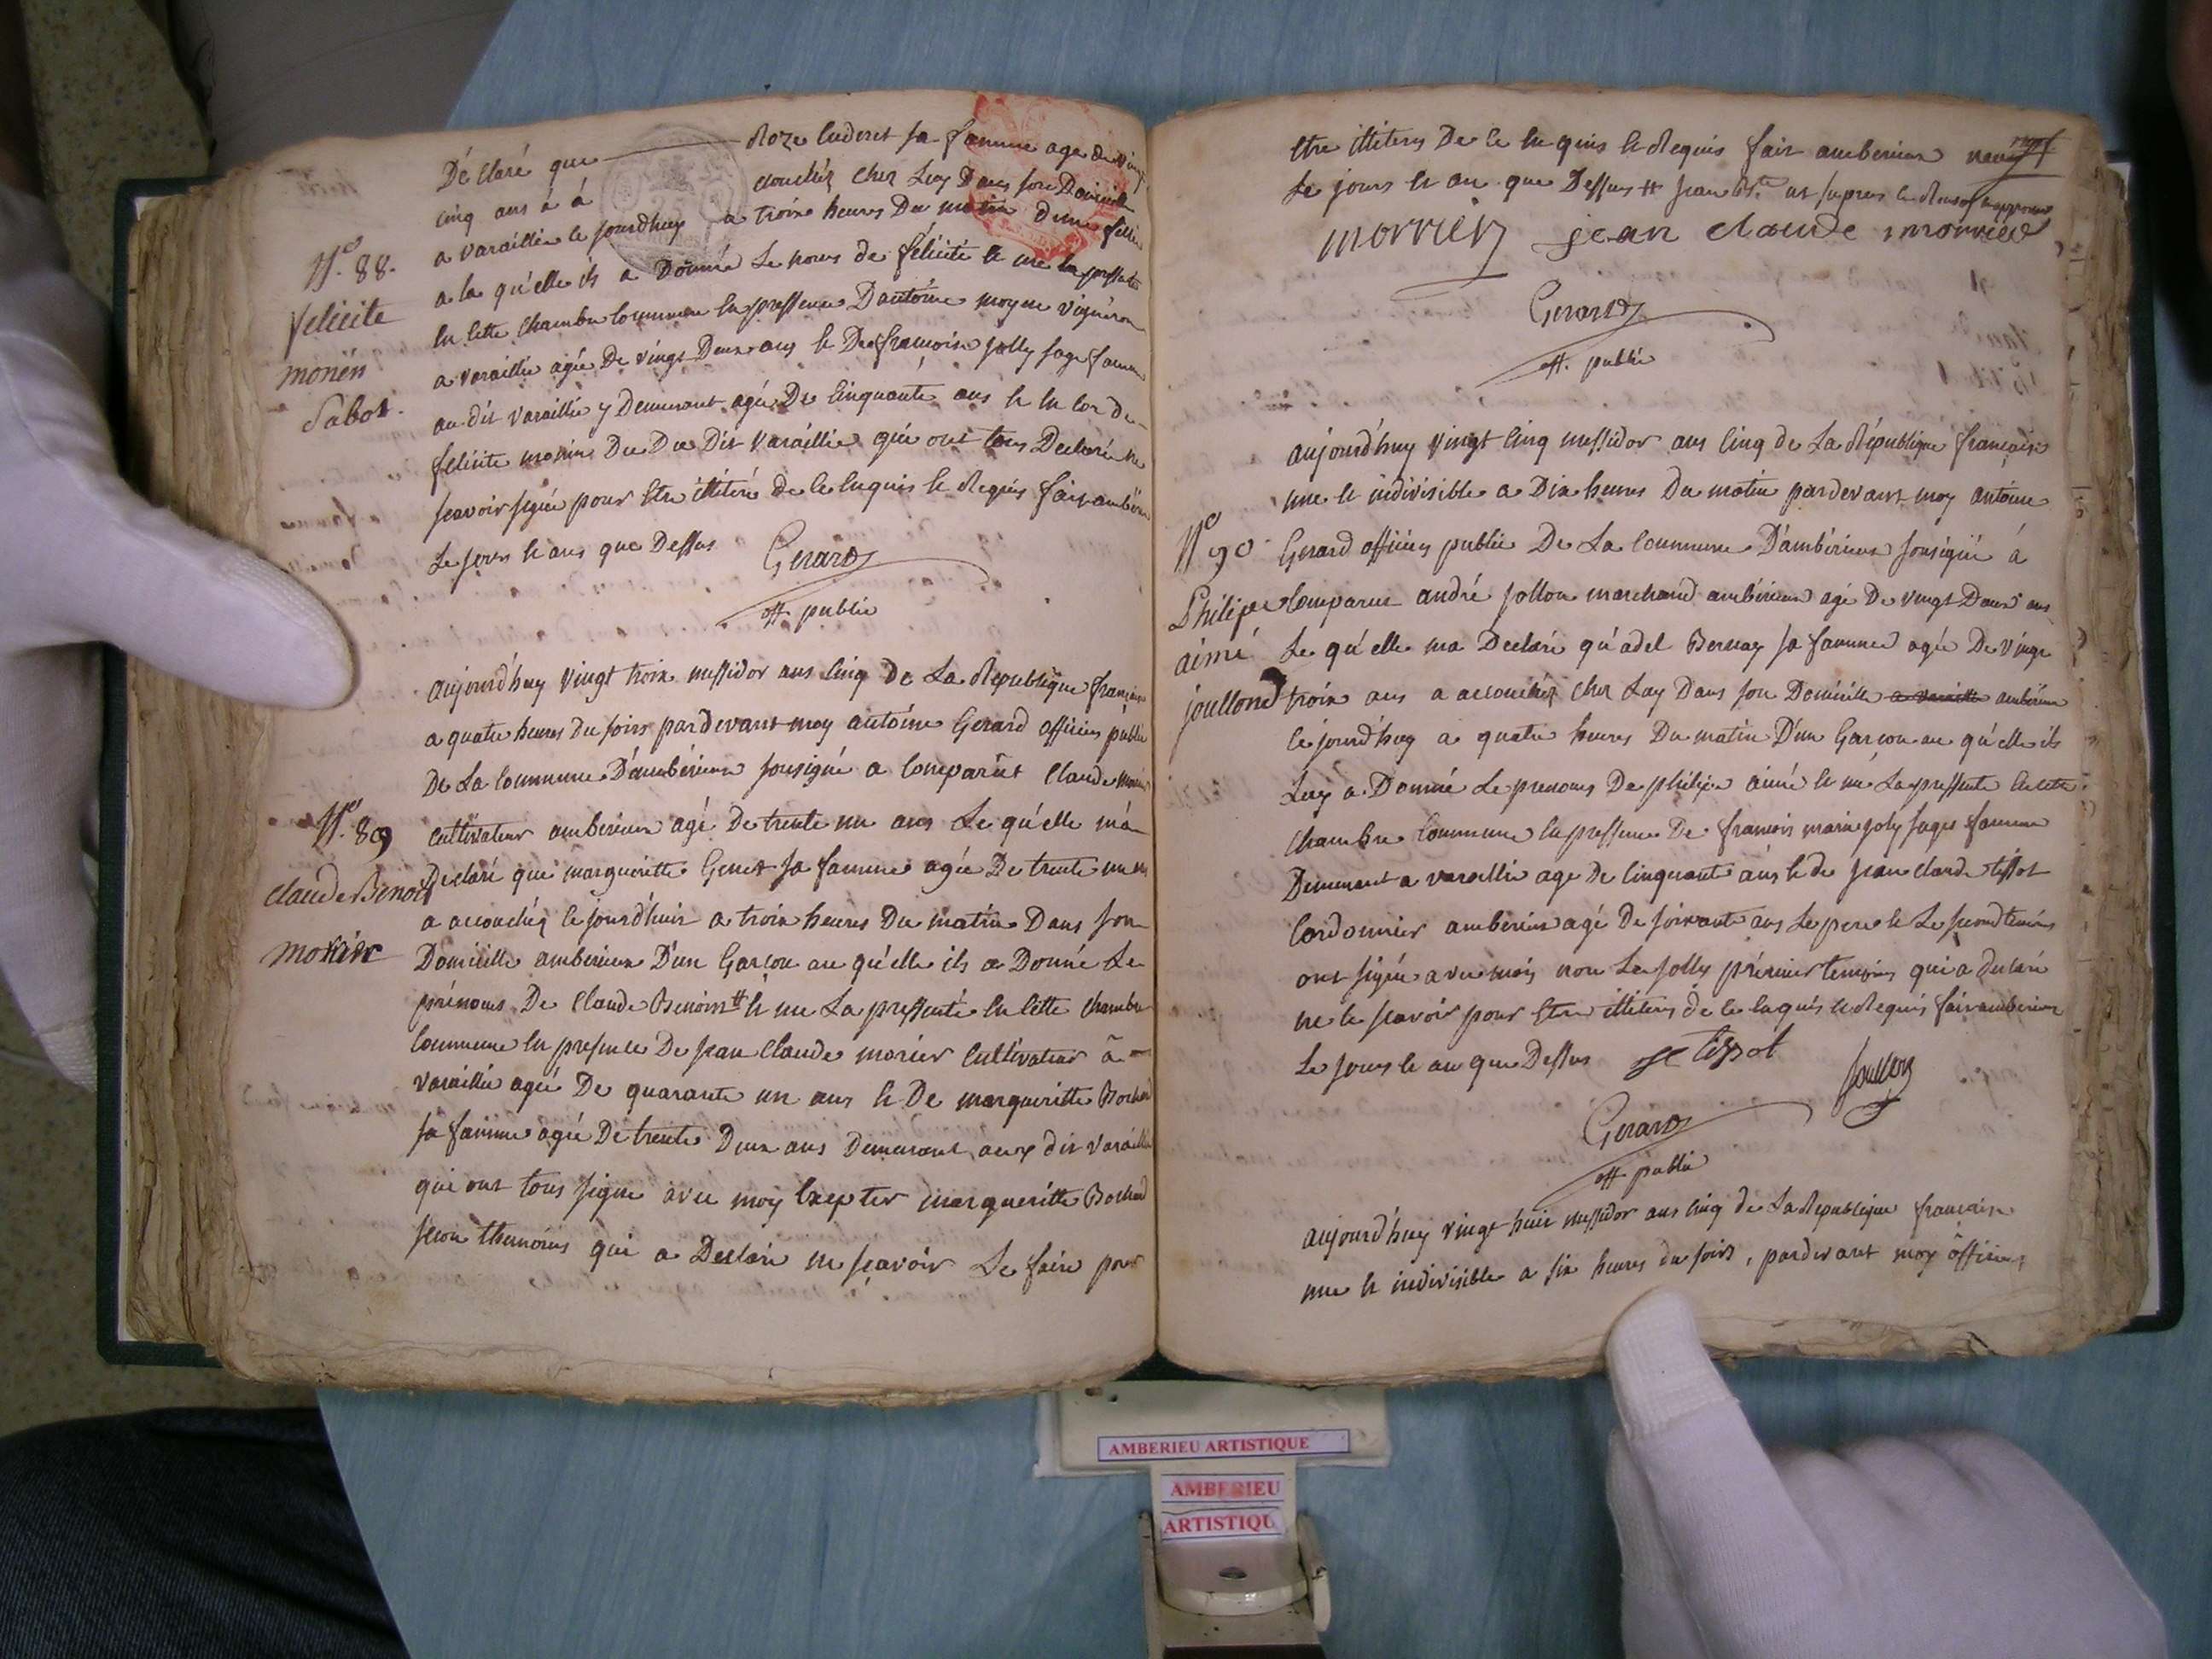 Déclaré que Roze sa famme age de vingt
cinq ans à à couchéz chez Luy Dans son Domicille
a varaillie le jourdhuy a troix heures Du matin dune fellie
N.º 88.
a la qu'elle ils a Donnée Le noms de félicite et me la pressente
felicite
En cette Chambre commune En pressence D'antoine moyne vigneron
monéin
a varaillie agée De vingt Deux ans et De françoise jolly sage famme
Sabot.
au dit varaillie y Demeurant agée De Cinquante ans
félicite monins Du Dit varaillie qui ont tous Declarée ne
scavoir signée pour Etre illitéré de ce Enquis et Requis fait ambérieu
Le jours et ans que Dessus Gerard
off. public
aujourd'huy vingt troix messidor ans Cinq de La Republique française
a quatre heures Du soirs pardevant moy antoine Gerard officier public
De La Commune D'ambérieux sousigné a comparût Claude
N.º 89
Cultivateur amberieux agé De trente un ans Le qu'elle m'a
Claude Benoit
Declaré que margueritte Genet sa famme agée De trente un ans
a accouchéz le jourd'huit a troix heures Du matin Dans son
monier
Domicille amberieux D'un Garçon au qu'elle ils a Donné Le
prénoms De Claude Benoit # et me La pressenté En cette Chambre
Commune En presence De jean Claude morier Cultivateur à
varaillie ageé De quarante un ans et De margueritte Bochard
sa famme agée De trente Deux ans Demeurant aux dit varaillie
qui ont tous signe avec moy Excepter margueritte Bochard
secon themoins qui a Declaré ne scavoir Le faire pour
Etre illiteres De ce En quis et Requis fait amberieux
Le jours et an que Dessus #
morrier jean claude morrier
Gerard
off. public
aujourd'huy vingt Cinq messidor ans Cinq de La République française
une et indivisible a Dix heures Du matin pardevant moy antoine
N.º 90
Gerard officier public De La Commune D'ambérieux sousigné à
Philipe
comparut andré jollon marchand ambérieux agé De vingt Deux ans
aimé
Le qu'elle ma Declaré qu'adel Bernay sa famme agée De vingt
joullond
troix ans a accouchéz chez Luy Dans son Domicille a varaillie ambérieux
Cejourd'huy a quatre heures Du matin D'un Garçon au qu'elle ils
Luy a Donné Le prenoms De philipe aimé et me La pressente En cette
Chambre Commune En pressence De françois marie joly sages famme
Demeurant a varaillie age De Cinquante ans et de jean Claude tissot
Cordonnier amberieux agé De soixante ans Le pere et Le second temoins
ont signée avec moy non La jolly prémier temoins qui a declaré
ne le scavoir pour Etre illiteres de ce Enquis et Requis fait amberieux
Le jours et an que Dessus jc tissot
joullon
Gerard
off. public
aujourd'huy vingt huit messidor ans Cinq de La Republique française
une et indivisible a six heures du soirs, pardevant moy officier
AMBERIEU ARTISTIQUE
AMBERIEU
ARTISTIQU